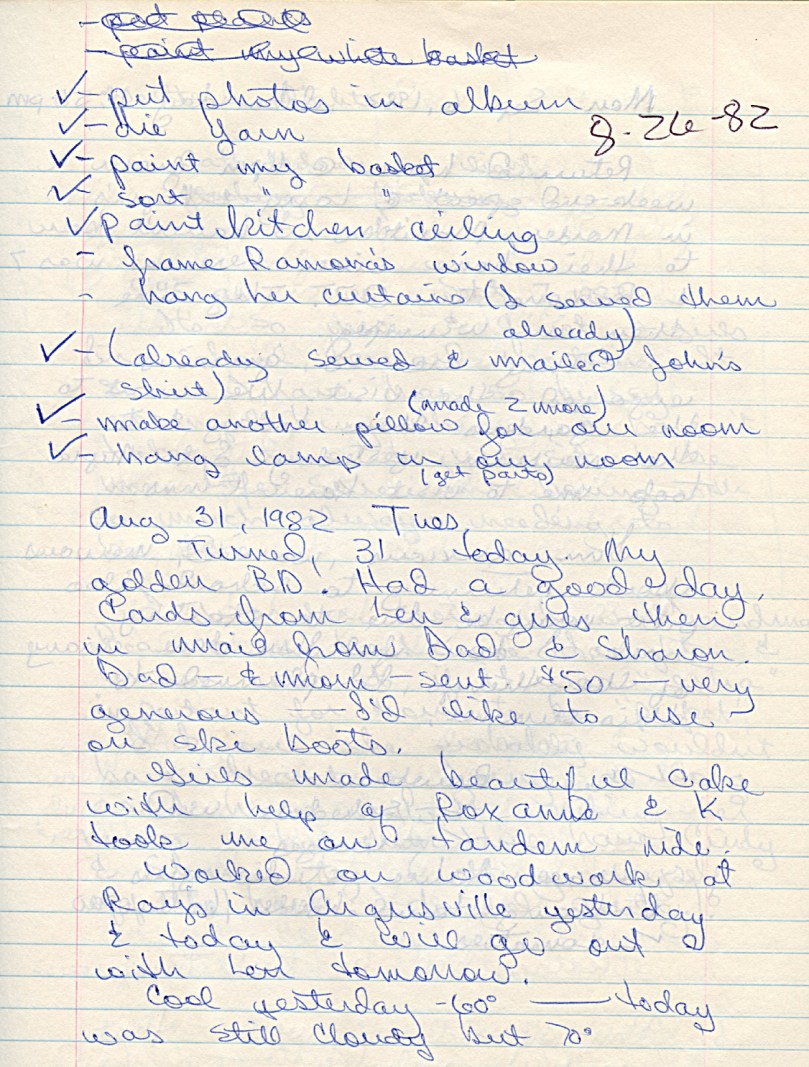 - paint my white basket
- put photos in album
8-26-82
- die yarn
- paint my basket
- sort " "
paint kitchen ceiling
- frame Ramona's window
- hang her curtains (I sewed them
already)
- (already sewed & mailed John's
shirt)
(made 2 more)
- make another pillow for our room
- hang lamp in our room
(get parts)
Aug 31, 1982 Tues.
Turned, 31 today. My
golden BD! Had a good day.
Cards from Len & girls then
in mail from Dad & Sharon.
Dad - & mom - sent $50 - very
generous - I'd like to use
on ski boots.
Girls made beautiful cake
with help of Roxanne & K
took me on tandem ride.
Worked on woodwork at
Rays in Argusville yesterday
& today & will go out
with Len tomorrow.
Cool yesterday - 60° — today
was still cloudy but 70°